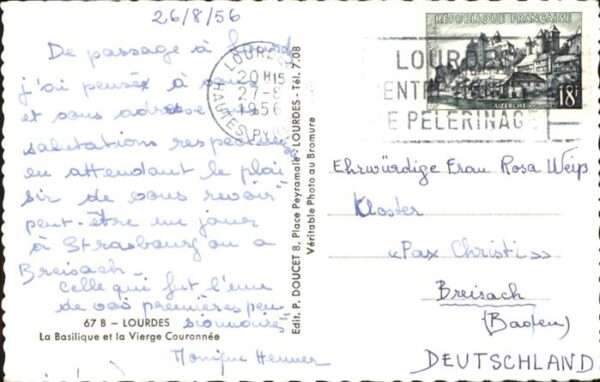 26/8/56
De passage à Lourdes
j'ai pensée à vous
et vous adresse les
salutations respectueuses
en attendant le plai
sir de vous revoir
peut-être un jour
à Strasbourg ou a
Breisach
Celle qui fut l'une
de vos premières pen
sionnaires
Monique Henner
67 B – LOURDES
La Basilique et la Vierge Couronnée
Edit. P. DOUCET 8, Place Peyramale - LOURDES - Tél. 7.08
Véritable Photo au Bromure
LOURDES
20 H 15
27-8
1956
HAUTES-PYR
LOURDES
PELERINAGE
REPUBLIQUE FRANÇAISE
UZERCHE
18F
Ehrwürdige Frau Rosa Weip
Kloster
«Pax Christi»
Breisach
(Baden)
DEUTSCHLAND